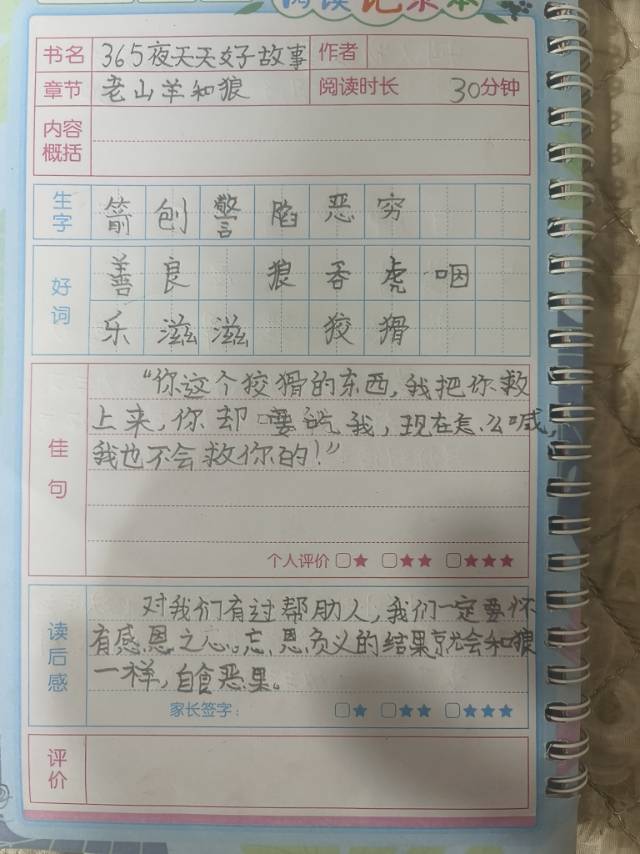 阅读记录本
书名 365夜天天好故事 作者
章节 老山羊和狼 阅读时长 30分钟
内容
概括
生字 箭 刨 警 陷 恶 穷
好词 善 良 狼 吞 虎 咽
乐 滋 滋 狡 猾
佳句
“你这个狡猾的东西,我把你救
上来,你却要吃我,现在怎么喊,
我也不会救你的!”
个人评价 □★ □★★ □★★★
读后感
对我们有过帮助人,我们一定要怀
有感恩之心。忘恩负义的结果就会和狼
一样,自食恶果。
家长签字: □★ □★★ □★★★
评价